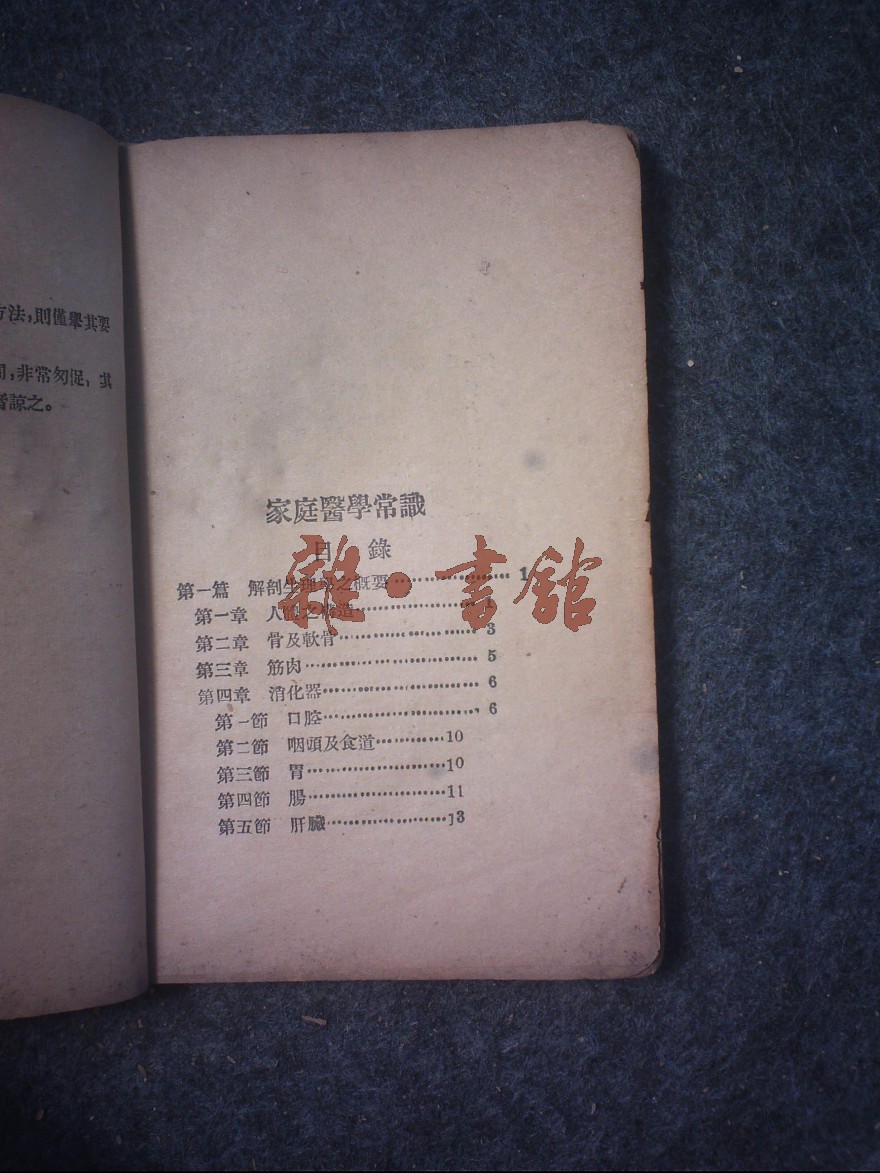 方法，則僅舉其要
非常匆促，其
諒之。
家庭醫學常識
目錄
第一篇 解剖生理學之概要………………1
第一章 人體之構造………………1
第二章 骨及軟骨………………3
第三章 筋肉………………5
第四章 消化器………………6
第一節 口腔………………6
第二節 咽頭及食道…………10
第三節 胃………………10
第四節 腸………………11
第五節 肝臟………………13
雜·書館